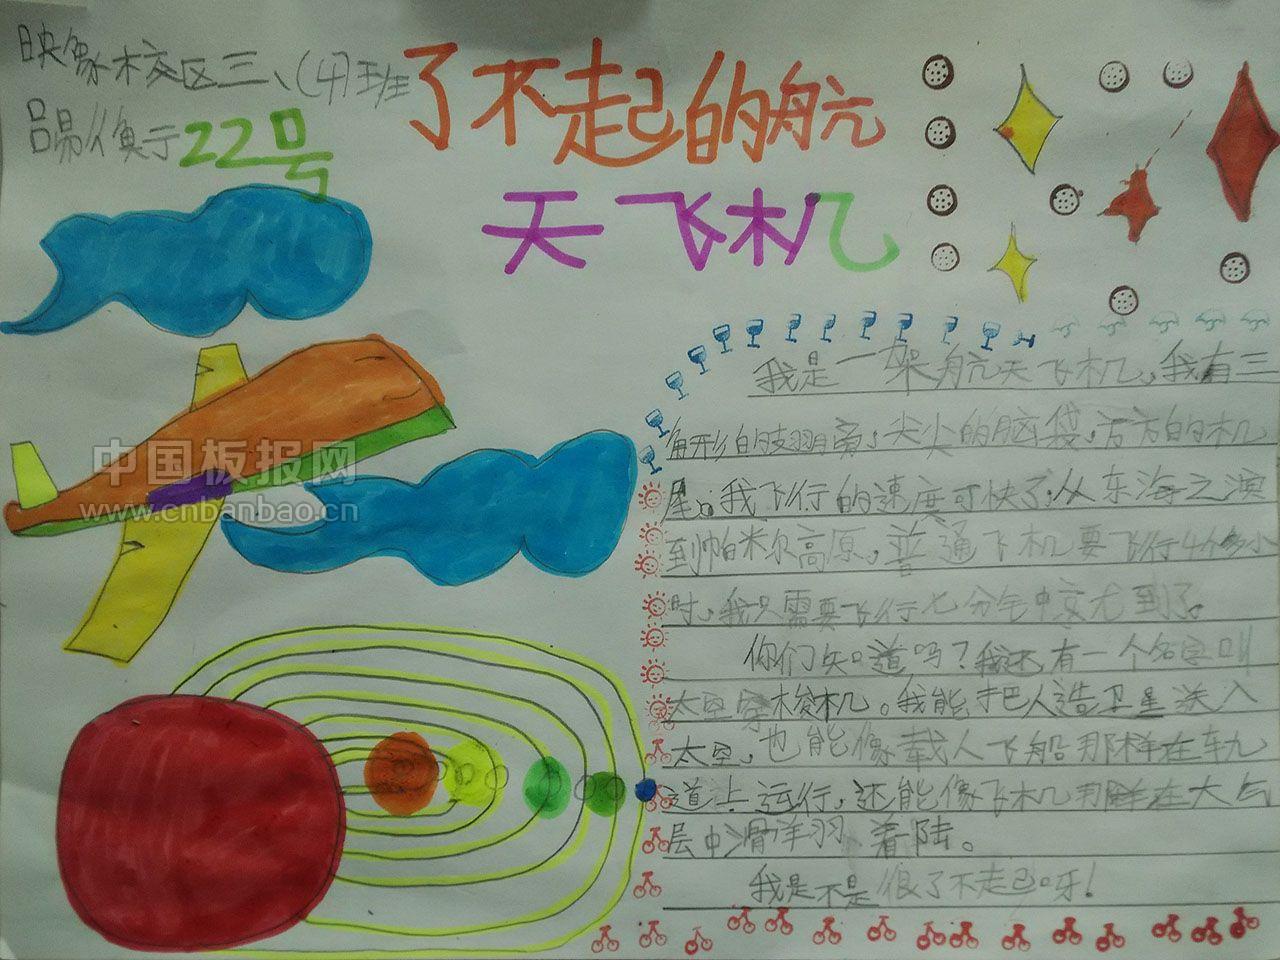 映像校区三、(4)班
22号
了不起的航
天飞机
我是一架航天飞机，我有三
角形的翅膀，尖尖的脑袋，方方的机
尾。我飞行的速度可快了，从东海之滨
到帕米尔高原，普通飞机要飞行4个多小
时，我只需要飞行七分钟就到了。
你们知道吗？我还有一个名字叫
太空穿梭机。我能把人造卫星送入
太空，也能像载人飞船那样在轨
道上运行，还能像飞机那样在大气
层中滑翔着陆。
我是不是很了不起呀！
中国板报网
www.cnbanbao.cn